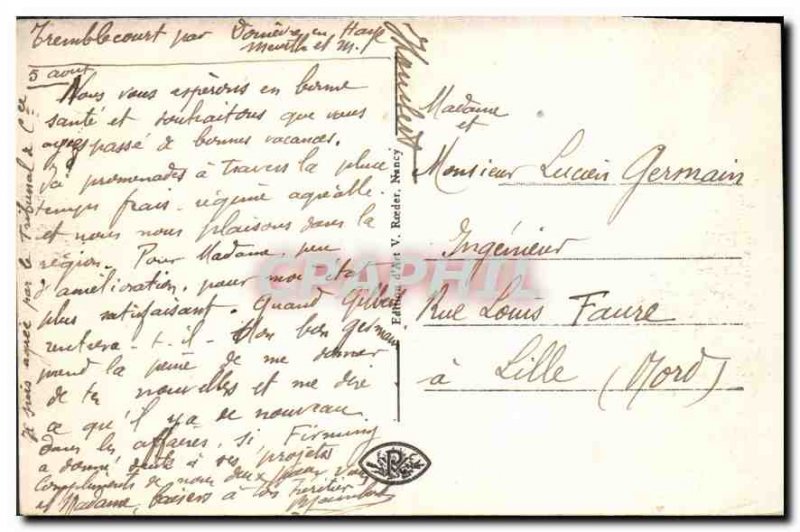 Tremblecourt par Domèvre en Haye
Meurthe et M.
5 août
Nous vous espérons en bonne
santé et souhaitons que vous
ayez passé de bonnes vacances.
Ici promenades à travers la pluie
temps frais - régime agréable.
et nous nous plaisons dans la
région. Pour Madame peu
d'amélioration, pour moi état
plus satisfaisant. Quand Gilbert
rentrera-t-il - Mon bon Germain
prend la peine de me donner
de tes nouvelles et me dire
ce qu'il y a de nouveau
dans les affaires, si Firminy
a donné suite à ses projets
Compliments de nous deux pour vous
et Madame, baisers à tes
Je suis agréé par le Tribunal de Cce
Edition d'Art V. Rœder, Nancy
Madame
et
Monsieur Lucien Germain
Ingénieur
Rue Louis Faure
à Lille (Nord)
CPAPHIL